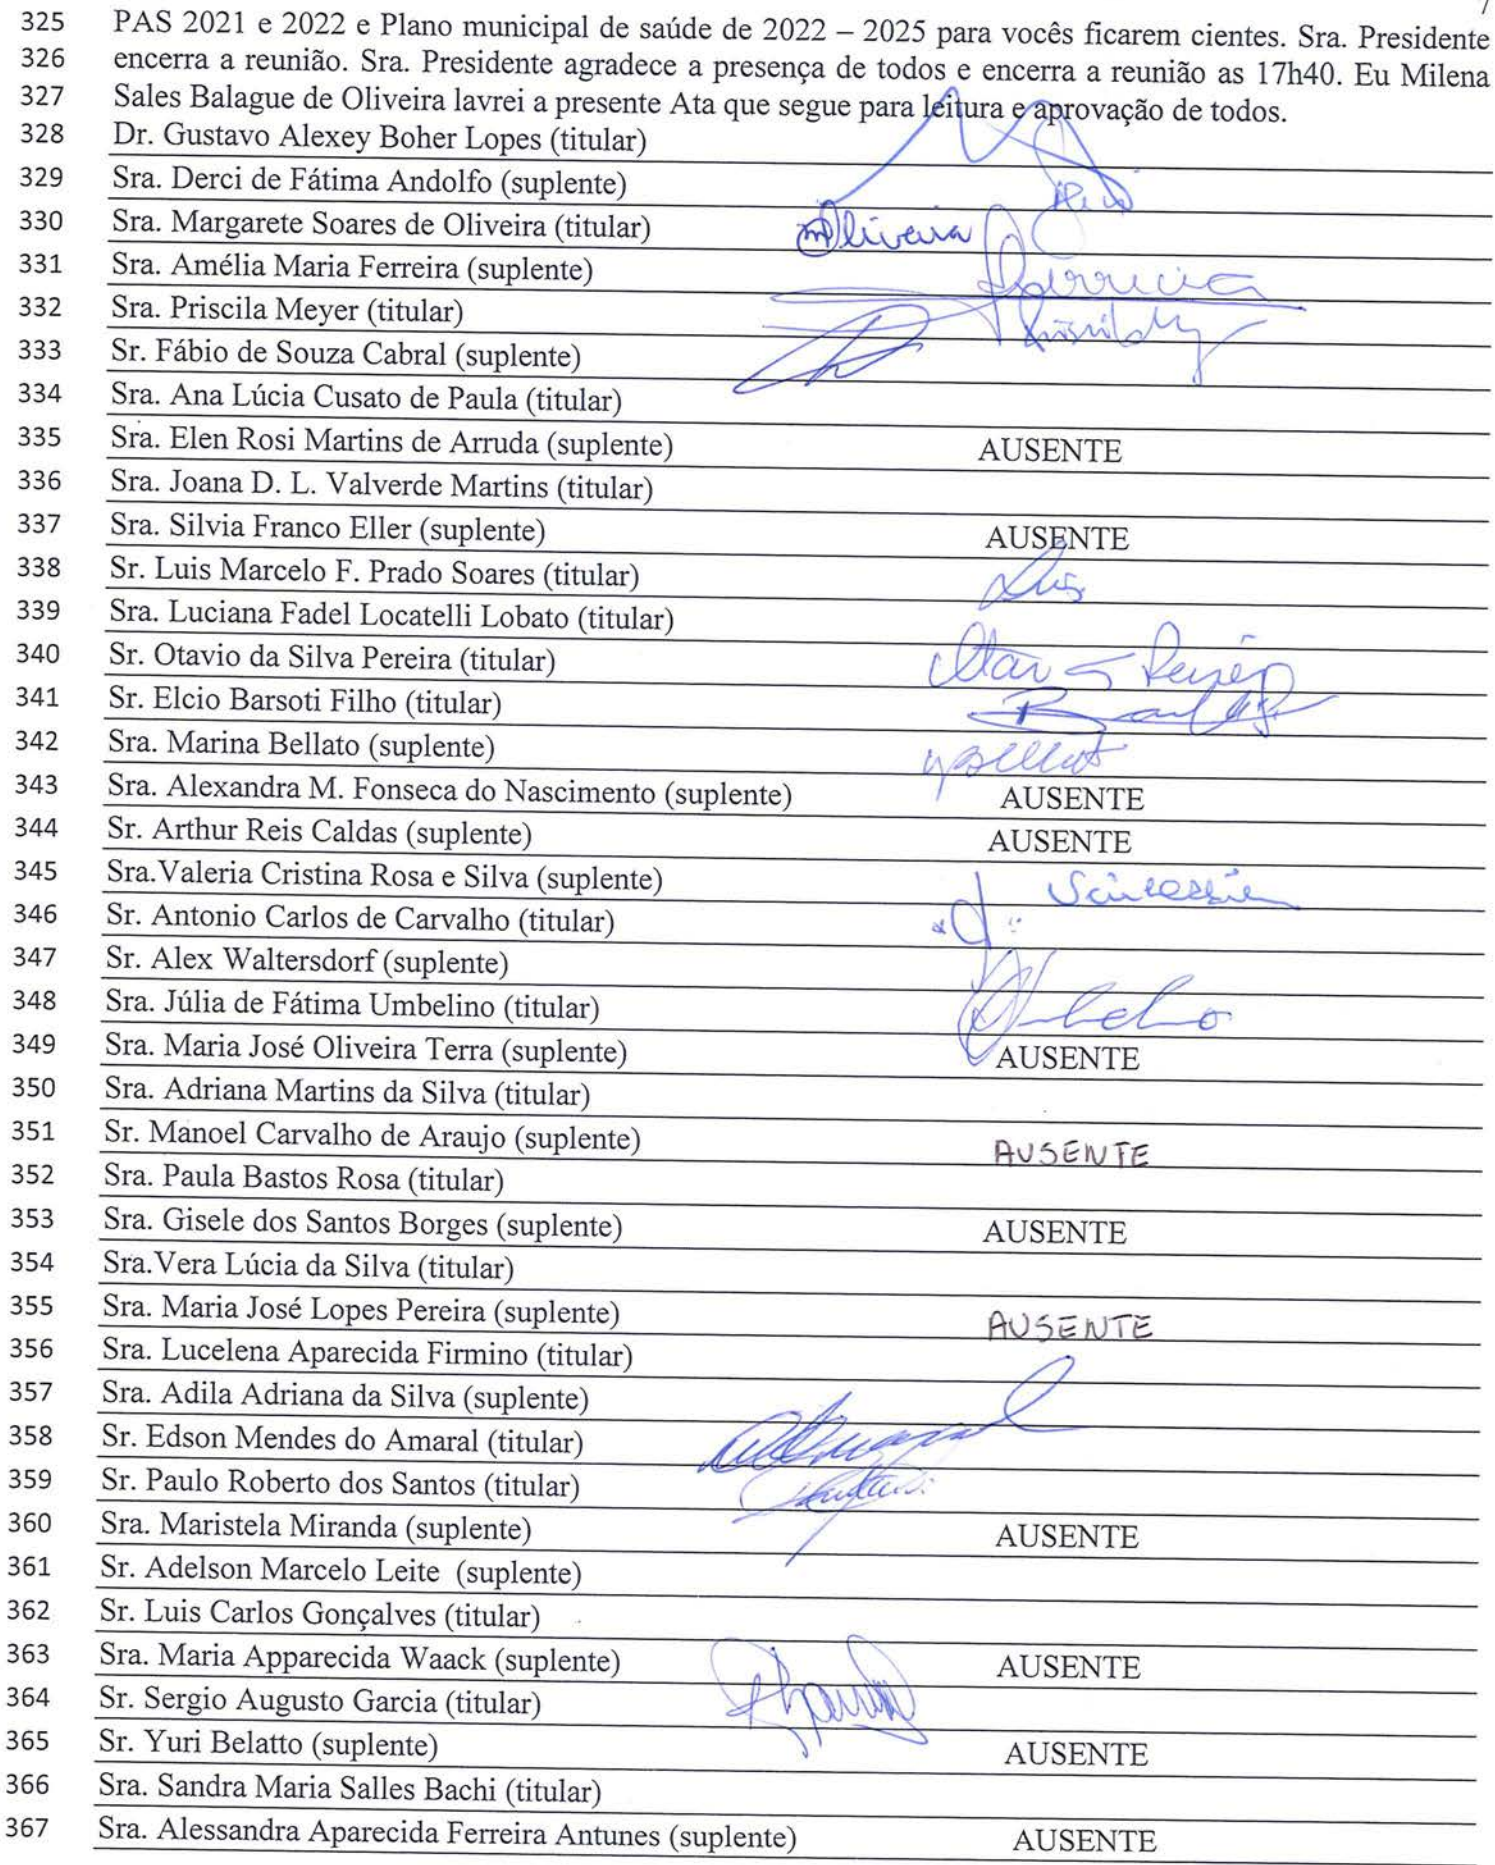 7
325 PAS 2021 e 2022 e Plano municipal de saúde de 2022 – 2025 para vocês ficarem cientes. Sra. Presidente
326 encerra a reunião. Sra. Presidente agradece a presença de todos e encerra a reunião as 17h40. Eu Milena
327 Sales Balague de Oliveira lavrei a presente Ata que segue para leitura e aprovação de todos.
328 Dr. Gustavo Alexey Boher Lopes (titular)
329 Sra. Derci de Fátima Andolfo (suplente)
330 Sra. Margarete Soares de Oliveira (titular) mOliveira
331 Sra. Amélia Maria Ferreira (suplente) Ferreira
332 Sra. Priscila Meyer (titular)
333 Sr. Fábio de Souza Cabral (suplente)
334 Sra. Ana Lúcia Cusato de Paula (titular)
335 Sra. Elen Rosi Martins de Arruda (suplente) AUSENTE
336 Sra. Joana D. L. Valverde Martins (titular)
337 Sra. Silvia Franco Eller (suplente) AUSENTE
338 Sr. Luis Marcelo F. Prado Soares (titular) Luis
339 Sra. Luciana Fadel Locatelli Lobato (titular)
340 Sr. Otavio da Silva Pereira (titular)
341 Sr. Elcio Barsoti Filho (titular)
342 Sra. Marina Bellato (suplente) mBellato
343 Sra. Alexandra M. Fonseca do Nascimento (suplente) AUSENTE
344 Sr. Arthur Reis Caldas (suplente) AUSENTE
345 Sra.Valeria Cristina Rosa e Silva (suplente)
346 Sr. Antonio Carlos de Carvalho (titular)
347 Sr. Alex Waltersdorf (suplente)
348 Sra. Júlia de Fátima Umbelino (titular)
349 Sra. Maria José Oliveira Terra (suplente) AUSENTE
350 Sra. Adriana Martins da Silva (titular)
351 Sr. Manoel Carvalho de Araujo (suplente) AUSENTE
352 Sra. Paula Bastos Rosa (titular)
353 Sra. Gisele dos Santos Borges (suplente) AUSENTE
354 Sra.Vera Lúcia da Silva (titular)
355 Sra. Maria José Lopes Pereira (suplente) AUSENTE
356 Sra. Lucelena Aparecida Firmino (titular)
357 Sra. Adila Adriana da Silva (suplente)
358 Sr. Edson Mendes do Amaral (titular)
359 Sr. Paulo Roberto dos Santos (titular)
360 Sra. Maristela Miranda (suplente) AUSENTE
361 Sr. Adelson Marcelo Leite (suplente)
362 Sr. Luis Carlos Gonçalves (titular)
363 Sra. Maria Apparecida Waack (suplente) AUSENTE
364 Sr. Sergio Augusto Garcia (titular)
365 Sr. Yuri Belatto (suplente) AUSENTE
366 Sra. Sandra Maria Salles Bachi (titular)
367 Sra. Alessandra Aparecida Ferreira Antunes (suplente) AUSENTE